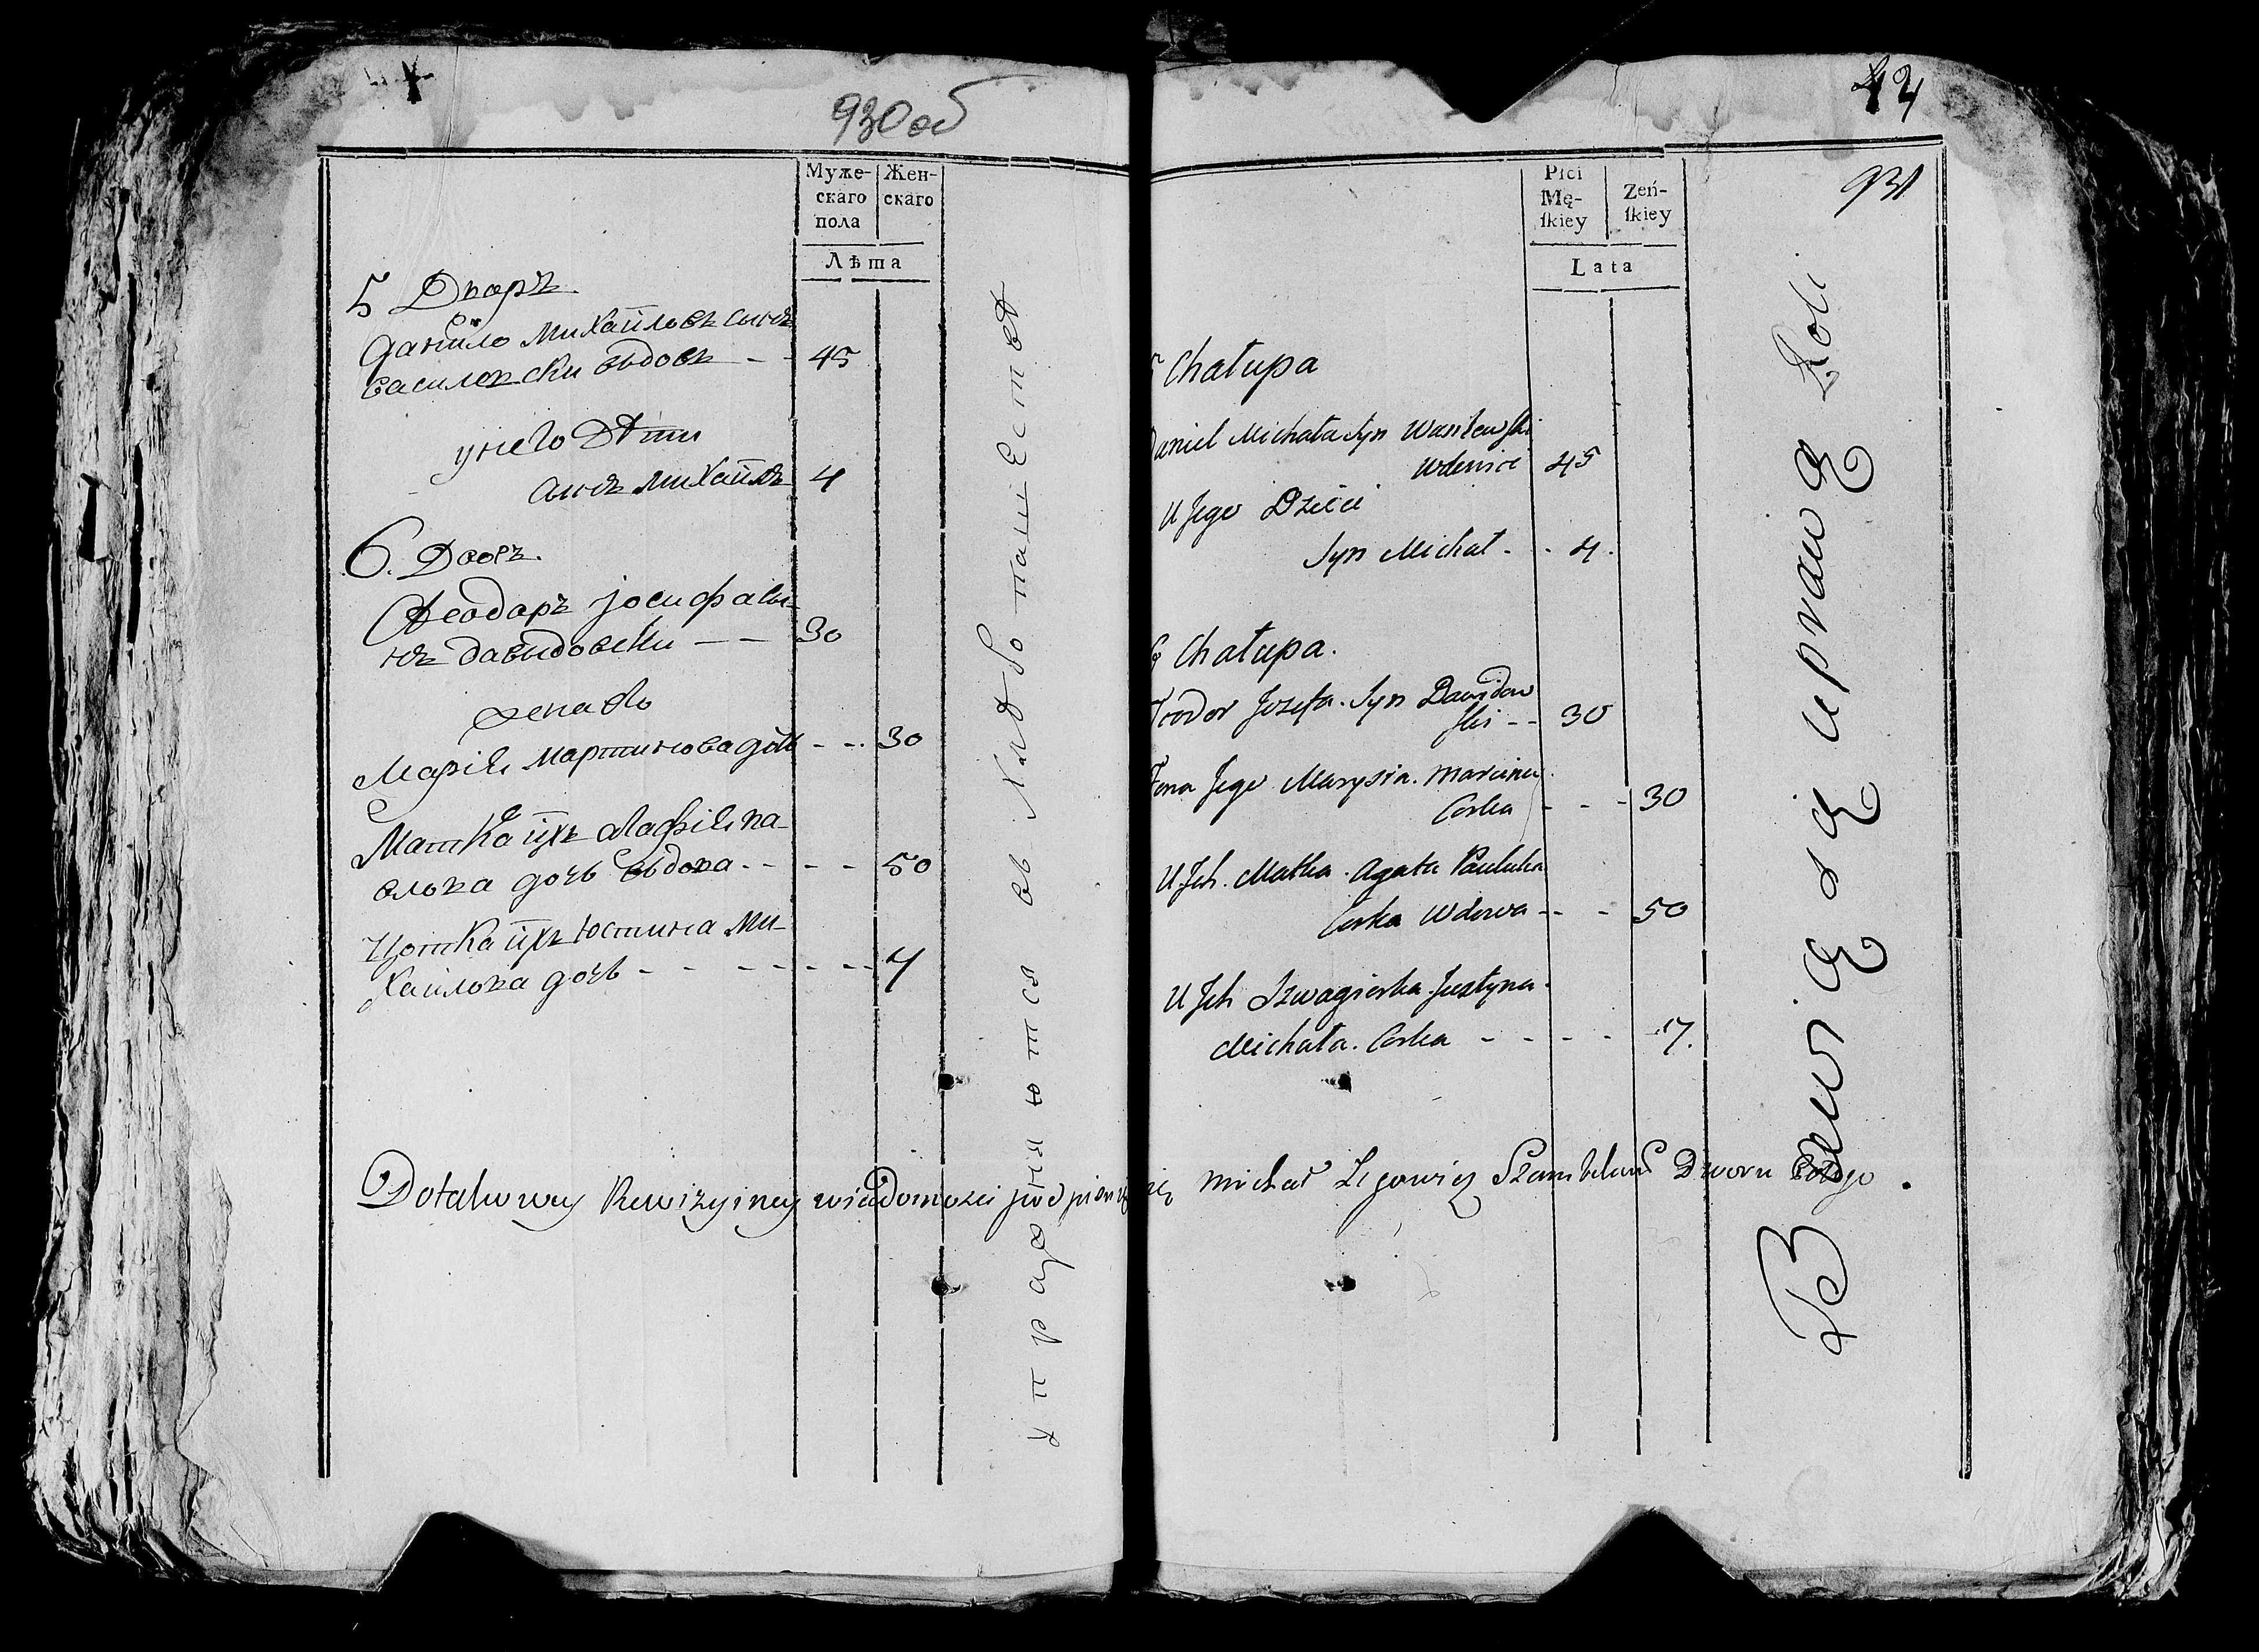 930 об
Муже-
скаго
пола
Жен-
скаго
Лѣта
5 Дворъ
Данило Михайловъ сынъ
василевски вдовъ - - 45
у него Дѣти
сынъ Михайлъ 4
6. Дворъ.
Феодоръ Іосифа сы-
нъ давыдовски - - 30
жена его
Марія мартинова дочь - - 30
Матка ихъ Агафія па-
влова дочь вдова - - - - 50
Цотка ихъ Юстина ми-
хайлова дочь - - - - - - 7
упражняются въ хлѣбопашествѣ
931
Płci
Mę-
ſkiey
Zeń-
ſkiey
Lata
5 Chałupa
Daniel Michała Syn Wasilewſki
Wdowiec 45
U Jego Dzieci
Syn Michał - - 4.
6 Chałupa.
Teodor Jozefa. Syn Dawidow
ſki - - 30
Żona Jego Marysia. Marcina
Corka - - - 30
U Jch. Matka. Agata Pawluka
Corka Wdowa - - - 50
U Jch Szwagierka Justyna.
Michała. Corka - - - - 7.
Bawią się uprawą Roli
Dotakowey Rewizyiney wiadomosci podpisuię Michał Szambelan Dworu